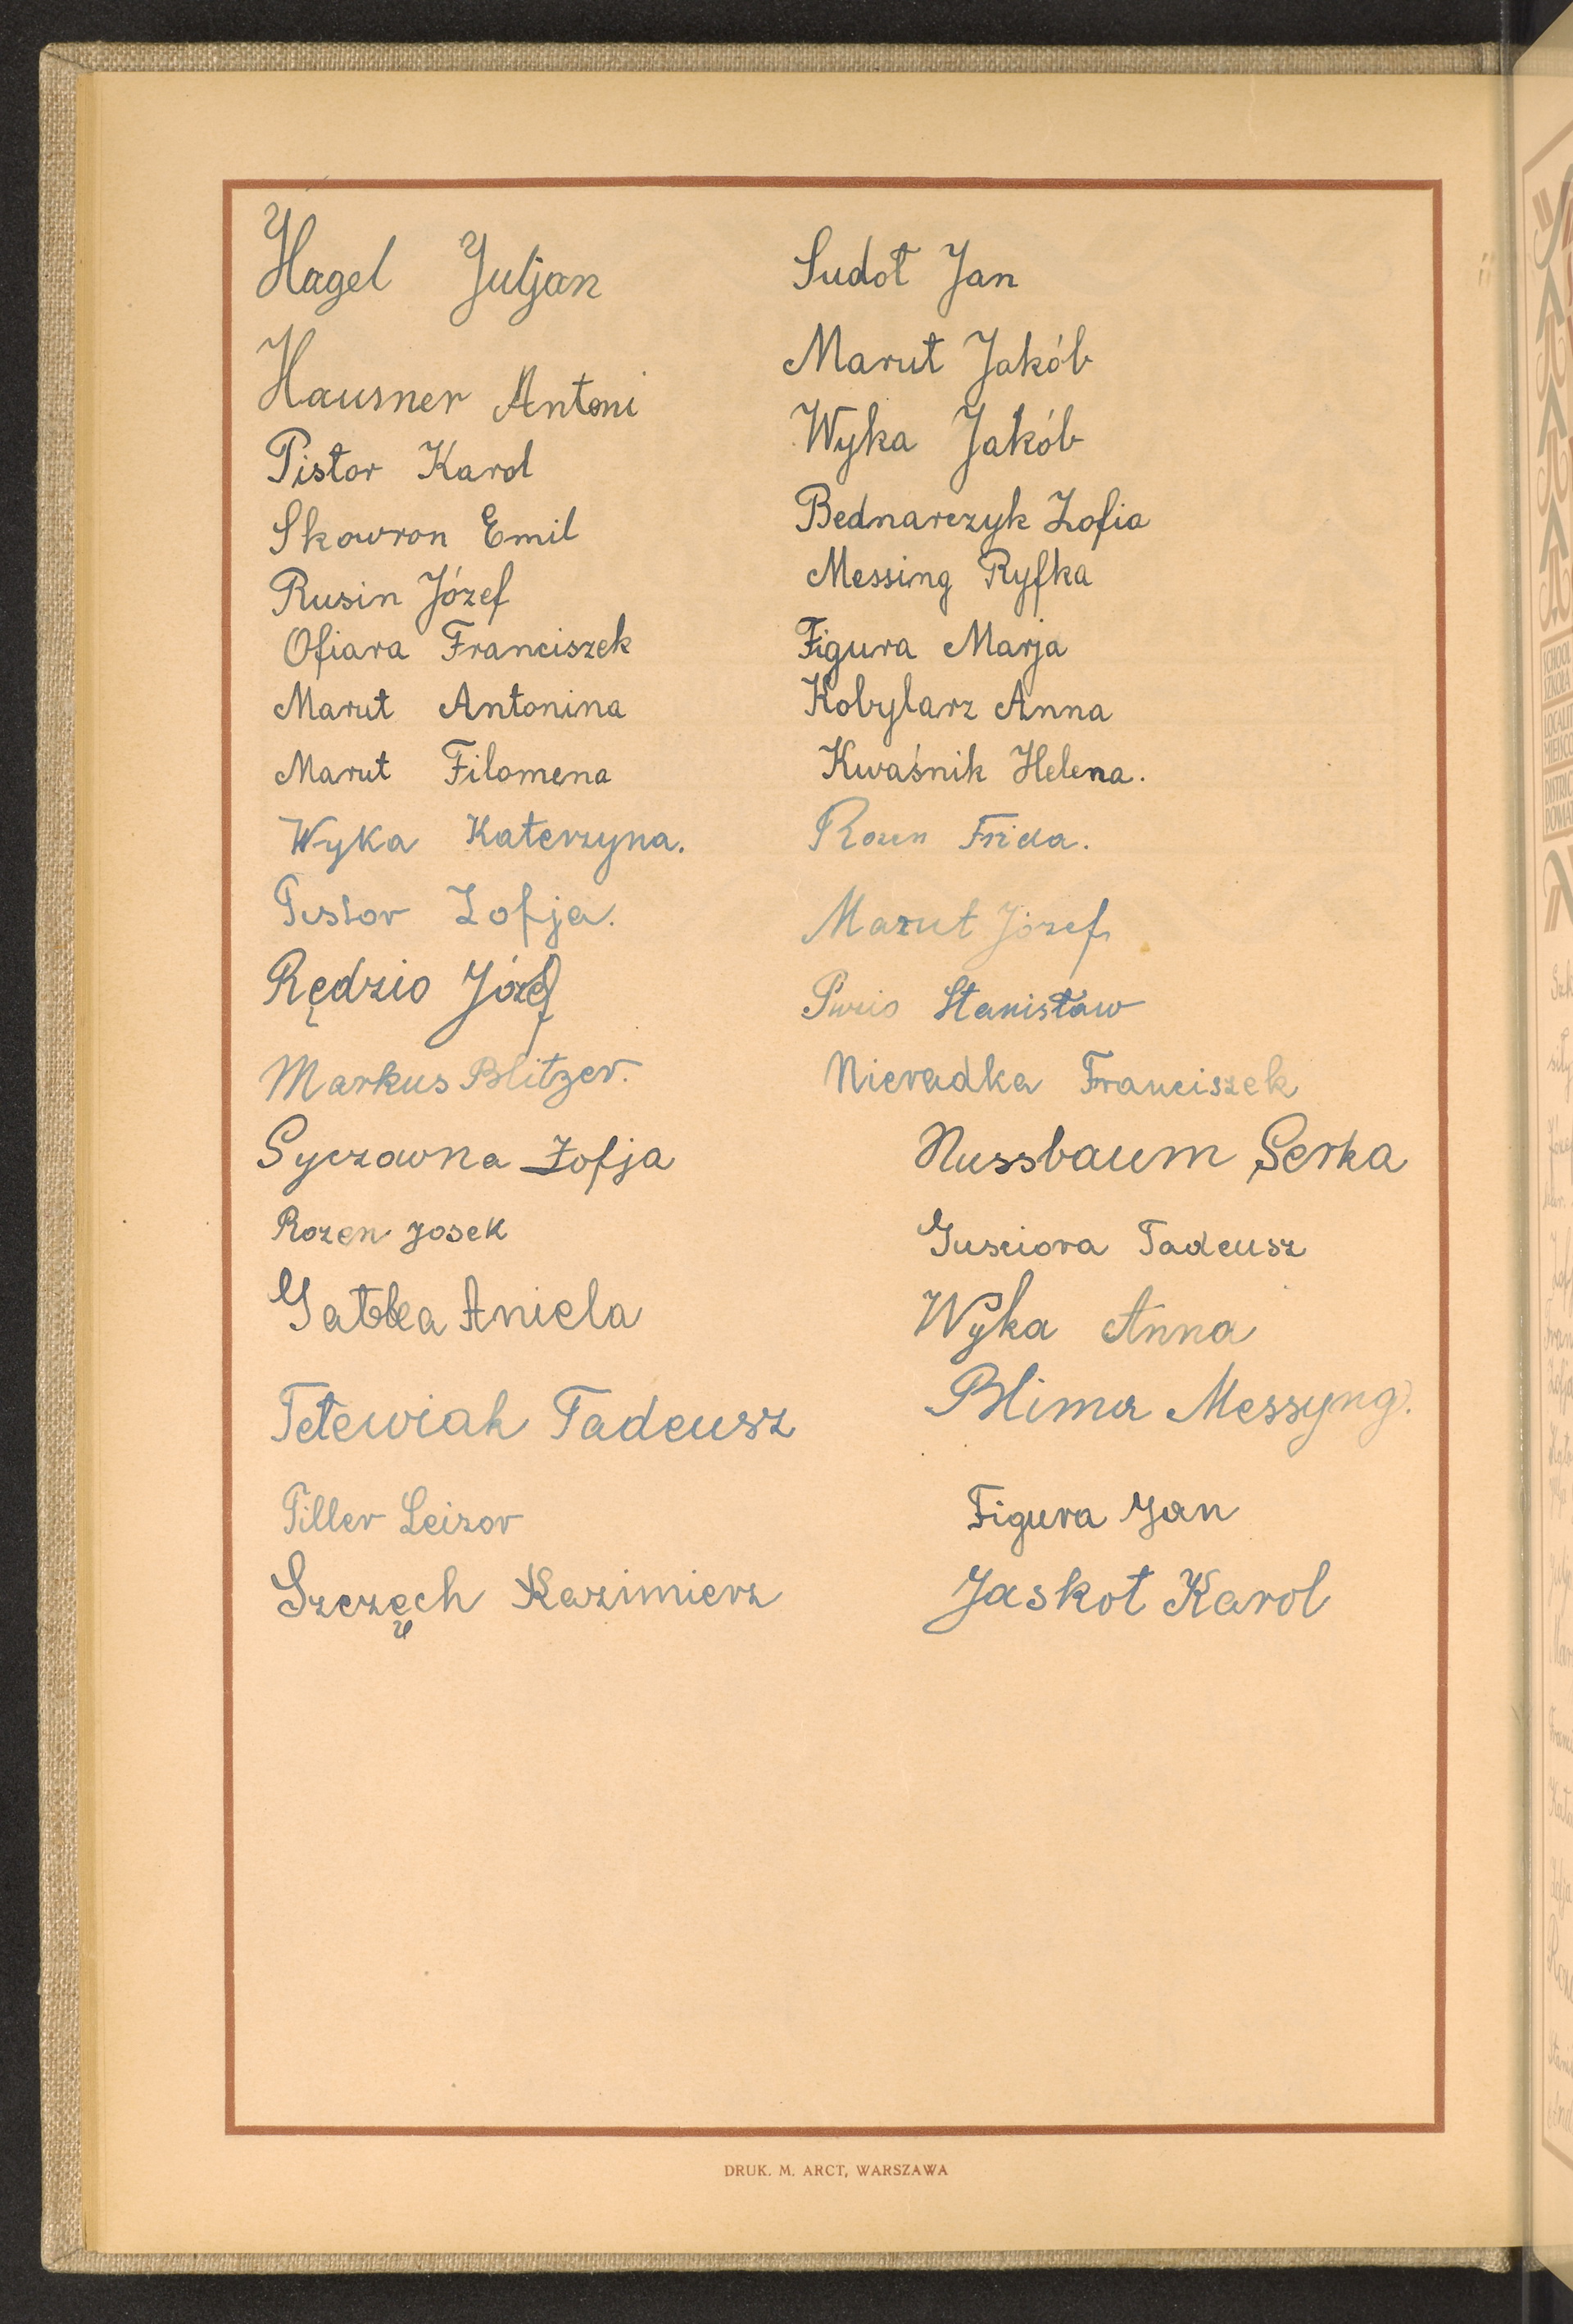 Hagel Juljan
Hausner Antoni
Pistor Karol
Skowron Emil
Rusin Józef
Ofiara Franciszek
Marut Antonina
Marut Filomena
Wyka Katerzyna.
Pistor Zofja.
Rędzio Józef
Markus Blitzer.
Syczowna Zofja
Rozen Josek
Gałbka Aniela
Tetewiak Tadeusz
Tiller Leizor
Szczęch Kazimierz
Sudoł Jan
Marut Jakób
Wyka Jakób
Bednarczyk Zofia
Messing Ryfka
Figura Marja
Kobylarz Anna
Kwaśnik Helena.
Rozen Frida.
Marut Józef
Stanisław
Nieradka Franciszek
Nussbaum Serka
Guściora Tadeusz
Wyka Anna
Blima Messyng.
Figura Jan
Jaskot Karol
DRUK. M. ARCT, WARSZAWA